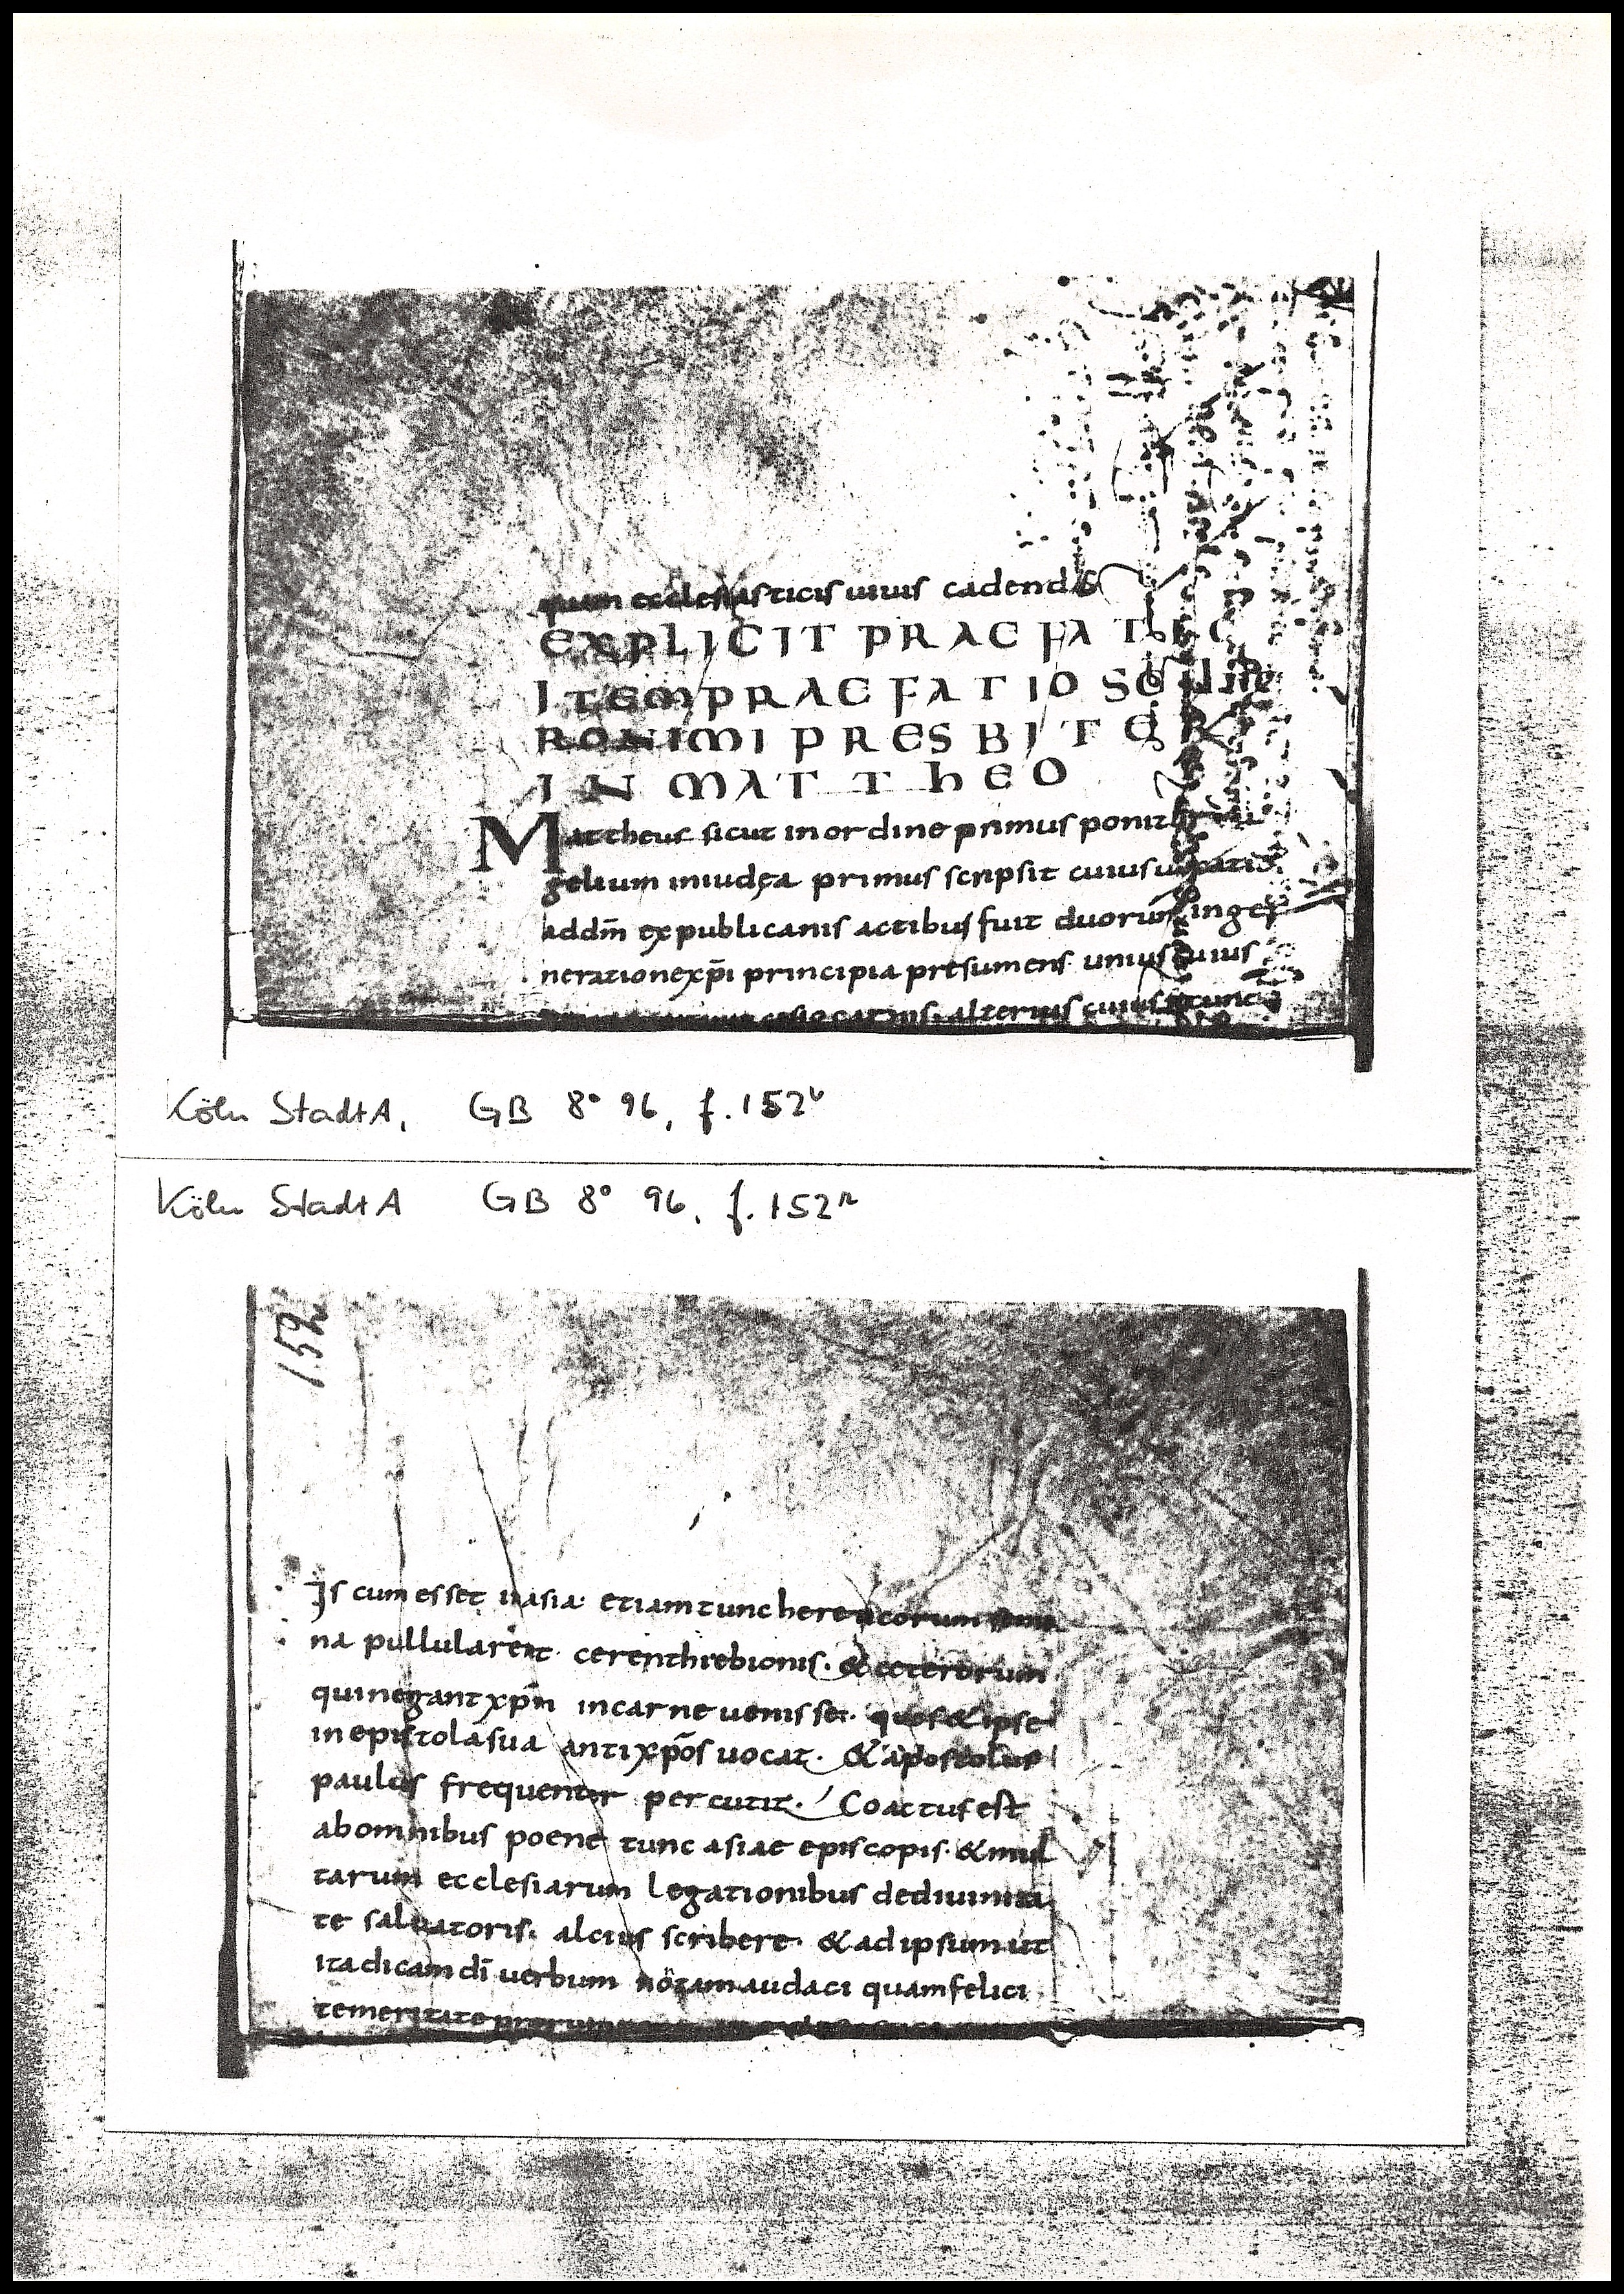 quam ecclesiasticis uiuis cadend&
EXPLICIT PRAEFATIO
ITEM PRAEFATIO SCI
RONIMI PRESBITER
IN MATTHEO
Mattheus sicut inordine primus ponit
gelium iniudęa primus scripsit cuius
addm̄ expublicanis actibus fuit duorum inge
nerationexp̄i principia presumens unius cuius
alterius cuius
Köln StadtA, GB 8° 96, f. 152v
Köln StadtA GB 8° 96, f. 152r
152
Is cum esset inasia. etiamtunc hereticorum
na pullularent. cerenthiebionis. & ceterorum
quinegant xp̄m incarne uenisse. quos&ipse
inepistolasua antixp̄os uocat. & apostolus
paulus frequenter percutit. Coactus est
abomnibus poene tunc asiae episcopis. &mul
tarum ecclesiarum legationibus dediuinita
te saluatoris. alcius scribere. &adipsum ut
itadicam dī uerbum nōtam audaci quamfelici
temeritate